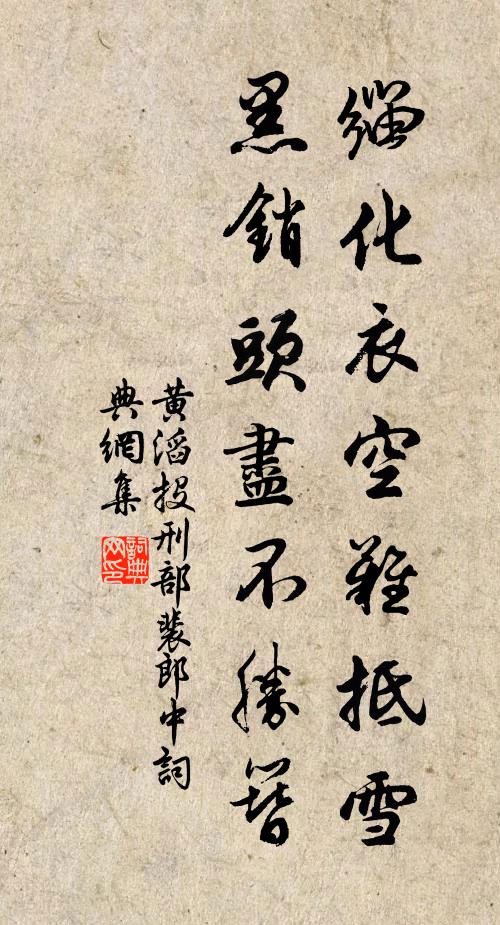 緇化衣空難抵雪
黑銷頭盡不勝簪
黃滔投刑部裴郎中詞
典網集
詞典網印